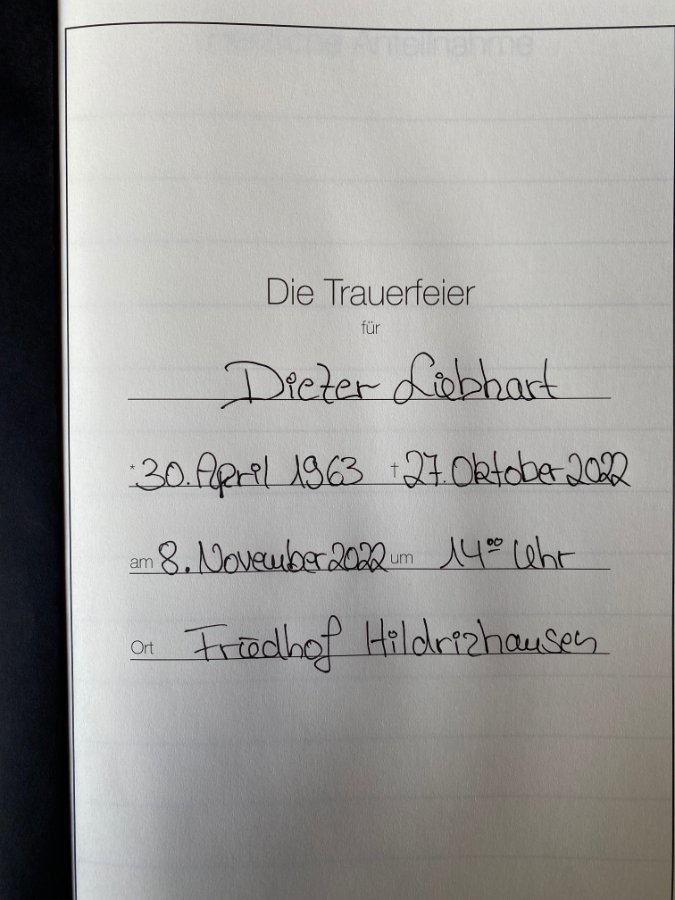 Die Trauerfeier
für
Dieter Liebhart
* 30. April 1963 † 27. Oktober 2022
am 8. November 2022 um 14⁰⁰ Uhr
Ort Friedhof Hildrizhausen